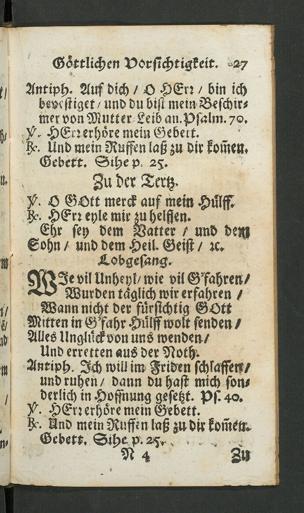 Göttlichen Vorsichtigkeit. 27
Antiph. Auf dich / O HErr / bin ich
bevestiget / und du bist mein Beschir-
mer von Mutter Leib an. Psalm. 70.
℣. HErr erhöre mein Gebett.
℟. Und mein Ruffen laß zu dir kom̃en.
Gebett. Sihe p. 25.
Zu der Tertz.
℣. O GOtt merck auf mein Hülff.
℟. HErr eyle mir zu helffen.
Ehr sey dem Vatter / und dem
Sohn / und dem Heil. Geist / ꝛc.
Lobgesang.
WIe vil Unheyl / wie vil G'fahren /
Wurden täglich wir erfahren /
Wann nicht der fürsichtig GOtt
Mitten in G'fahr Hülff wolt senden /
Alles Unglück von uns wenden /
Und erretten aus der Noth.
Antiph. Ich will im Friden schlaffen /
und ruhen / dann du hast mich son-
derlich in Hoffnung gesetzt. Ps. 40.
℣. HErr erhöre mein Gebett.
℟. Und mein Ruffen laß zu dir kom̃en.
Gebett. Sihe p. 25.
N 4 Zu